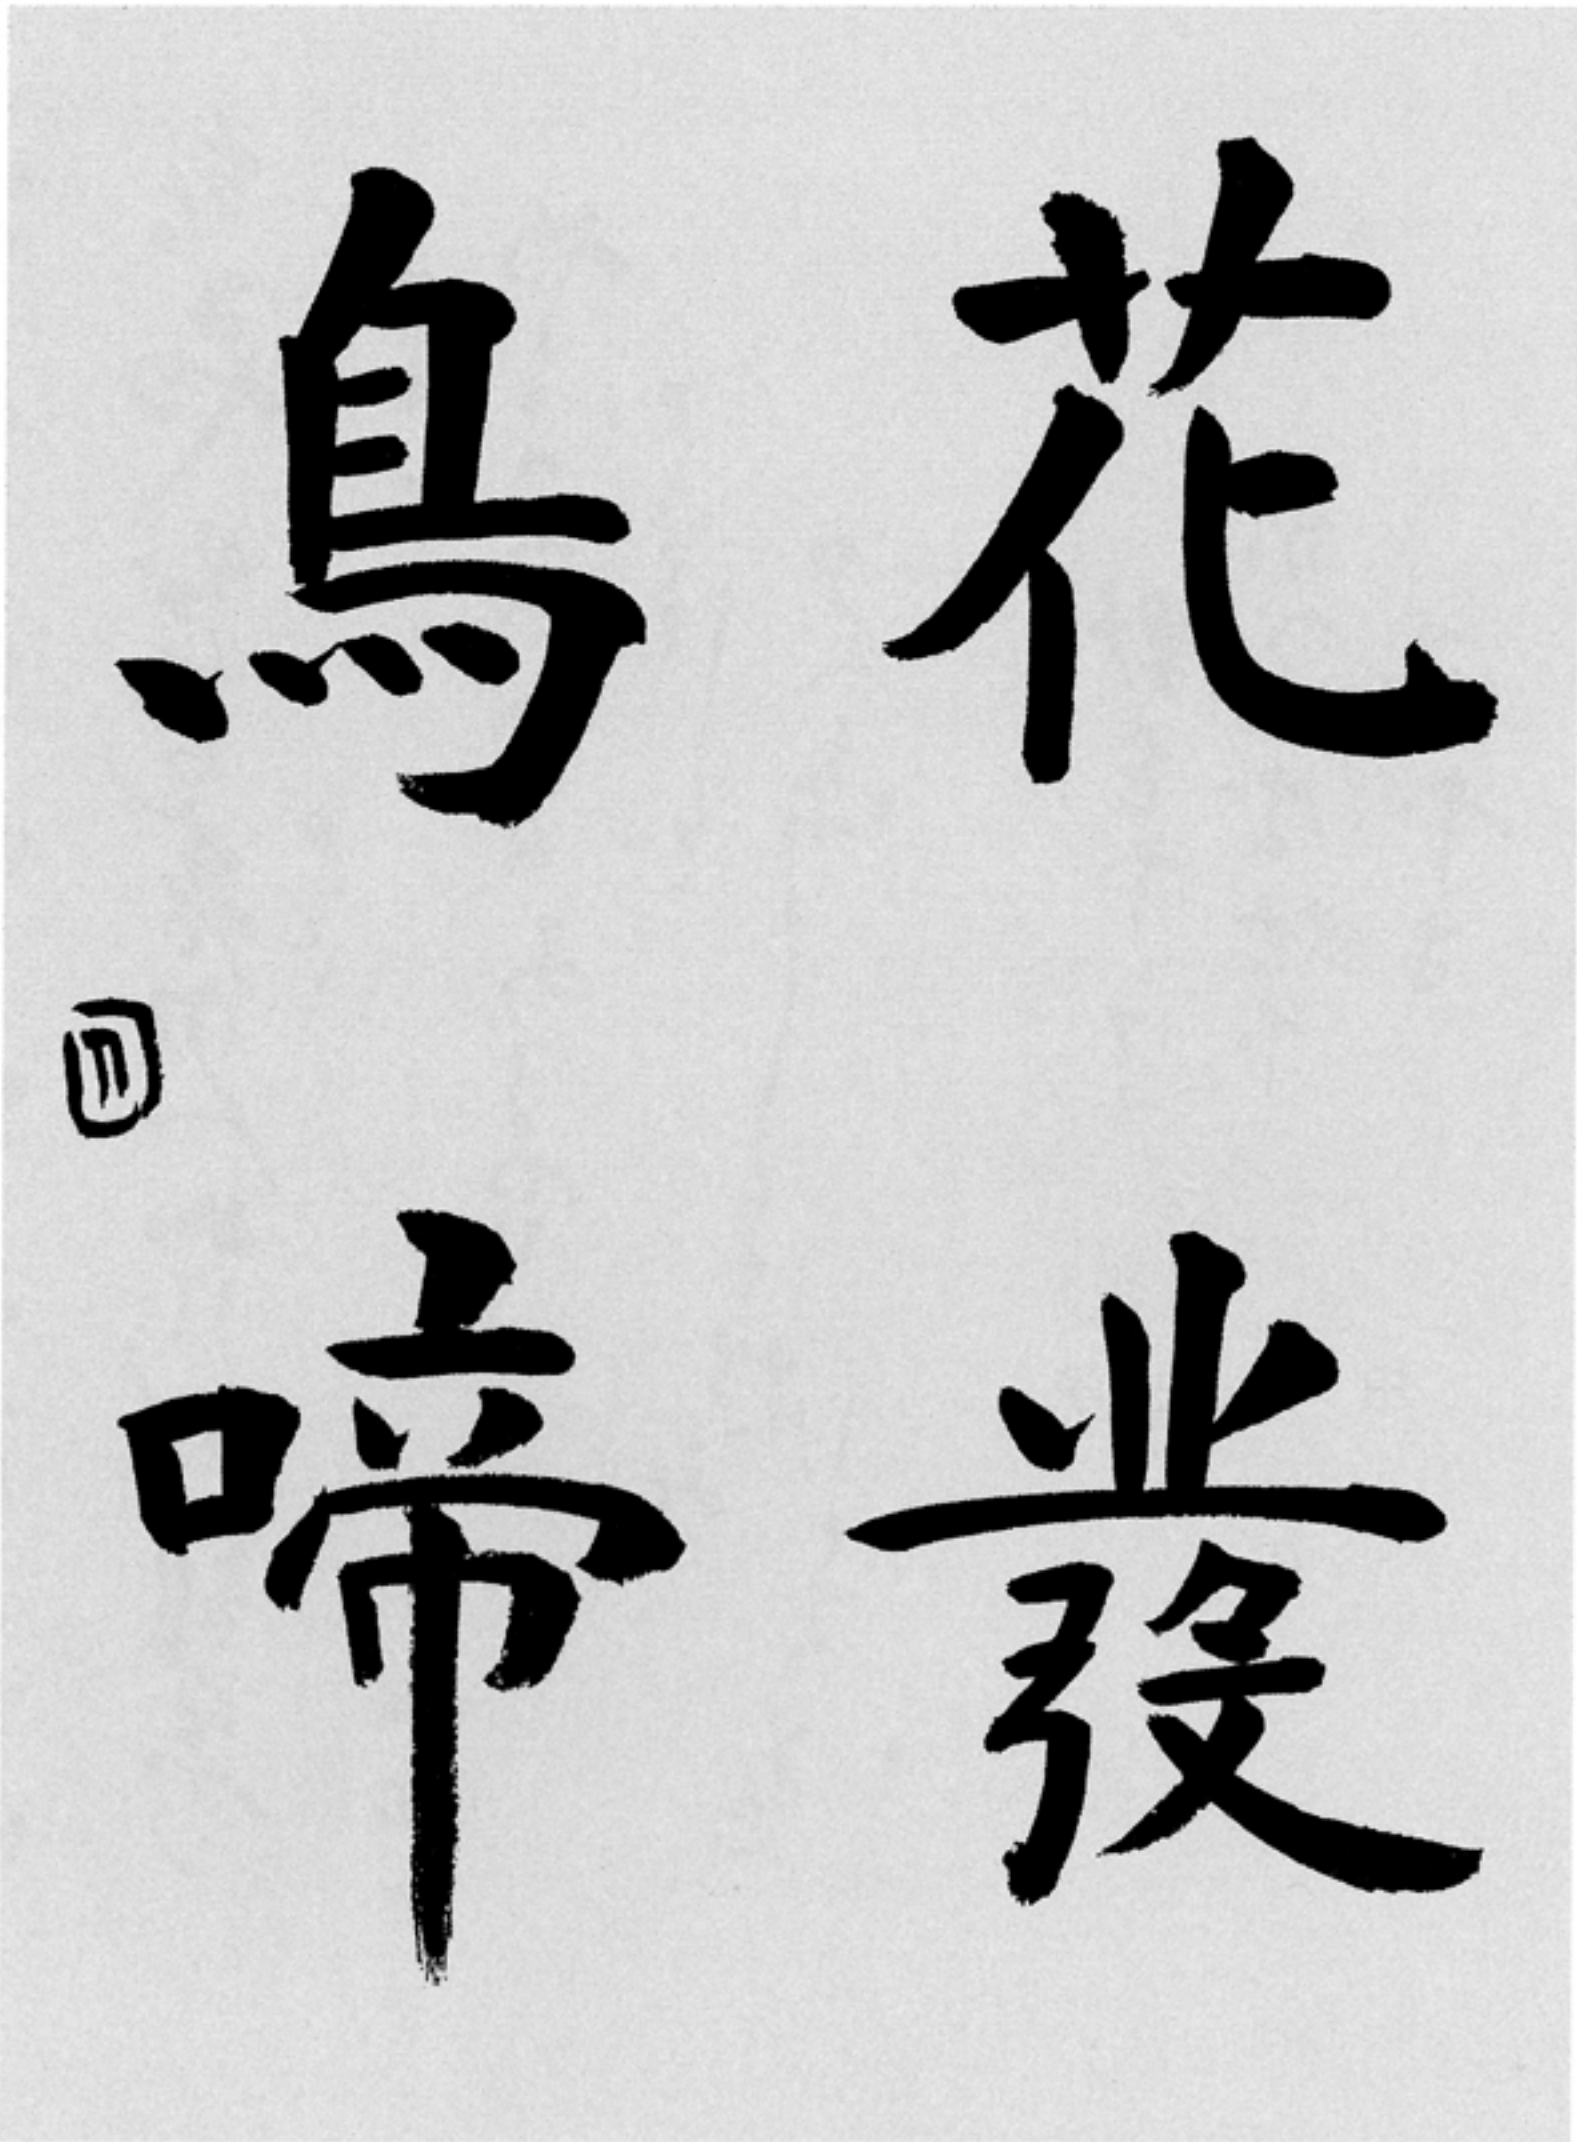 花發
鳥啼